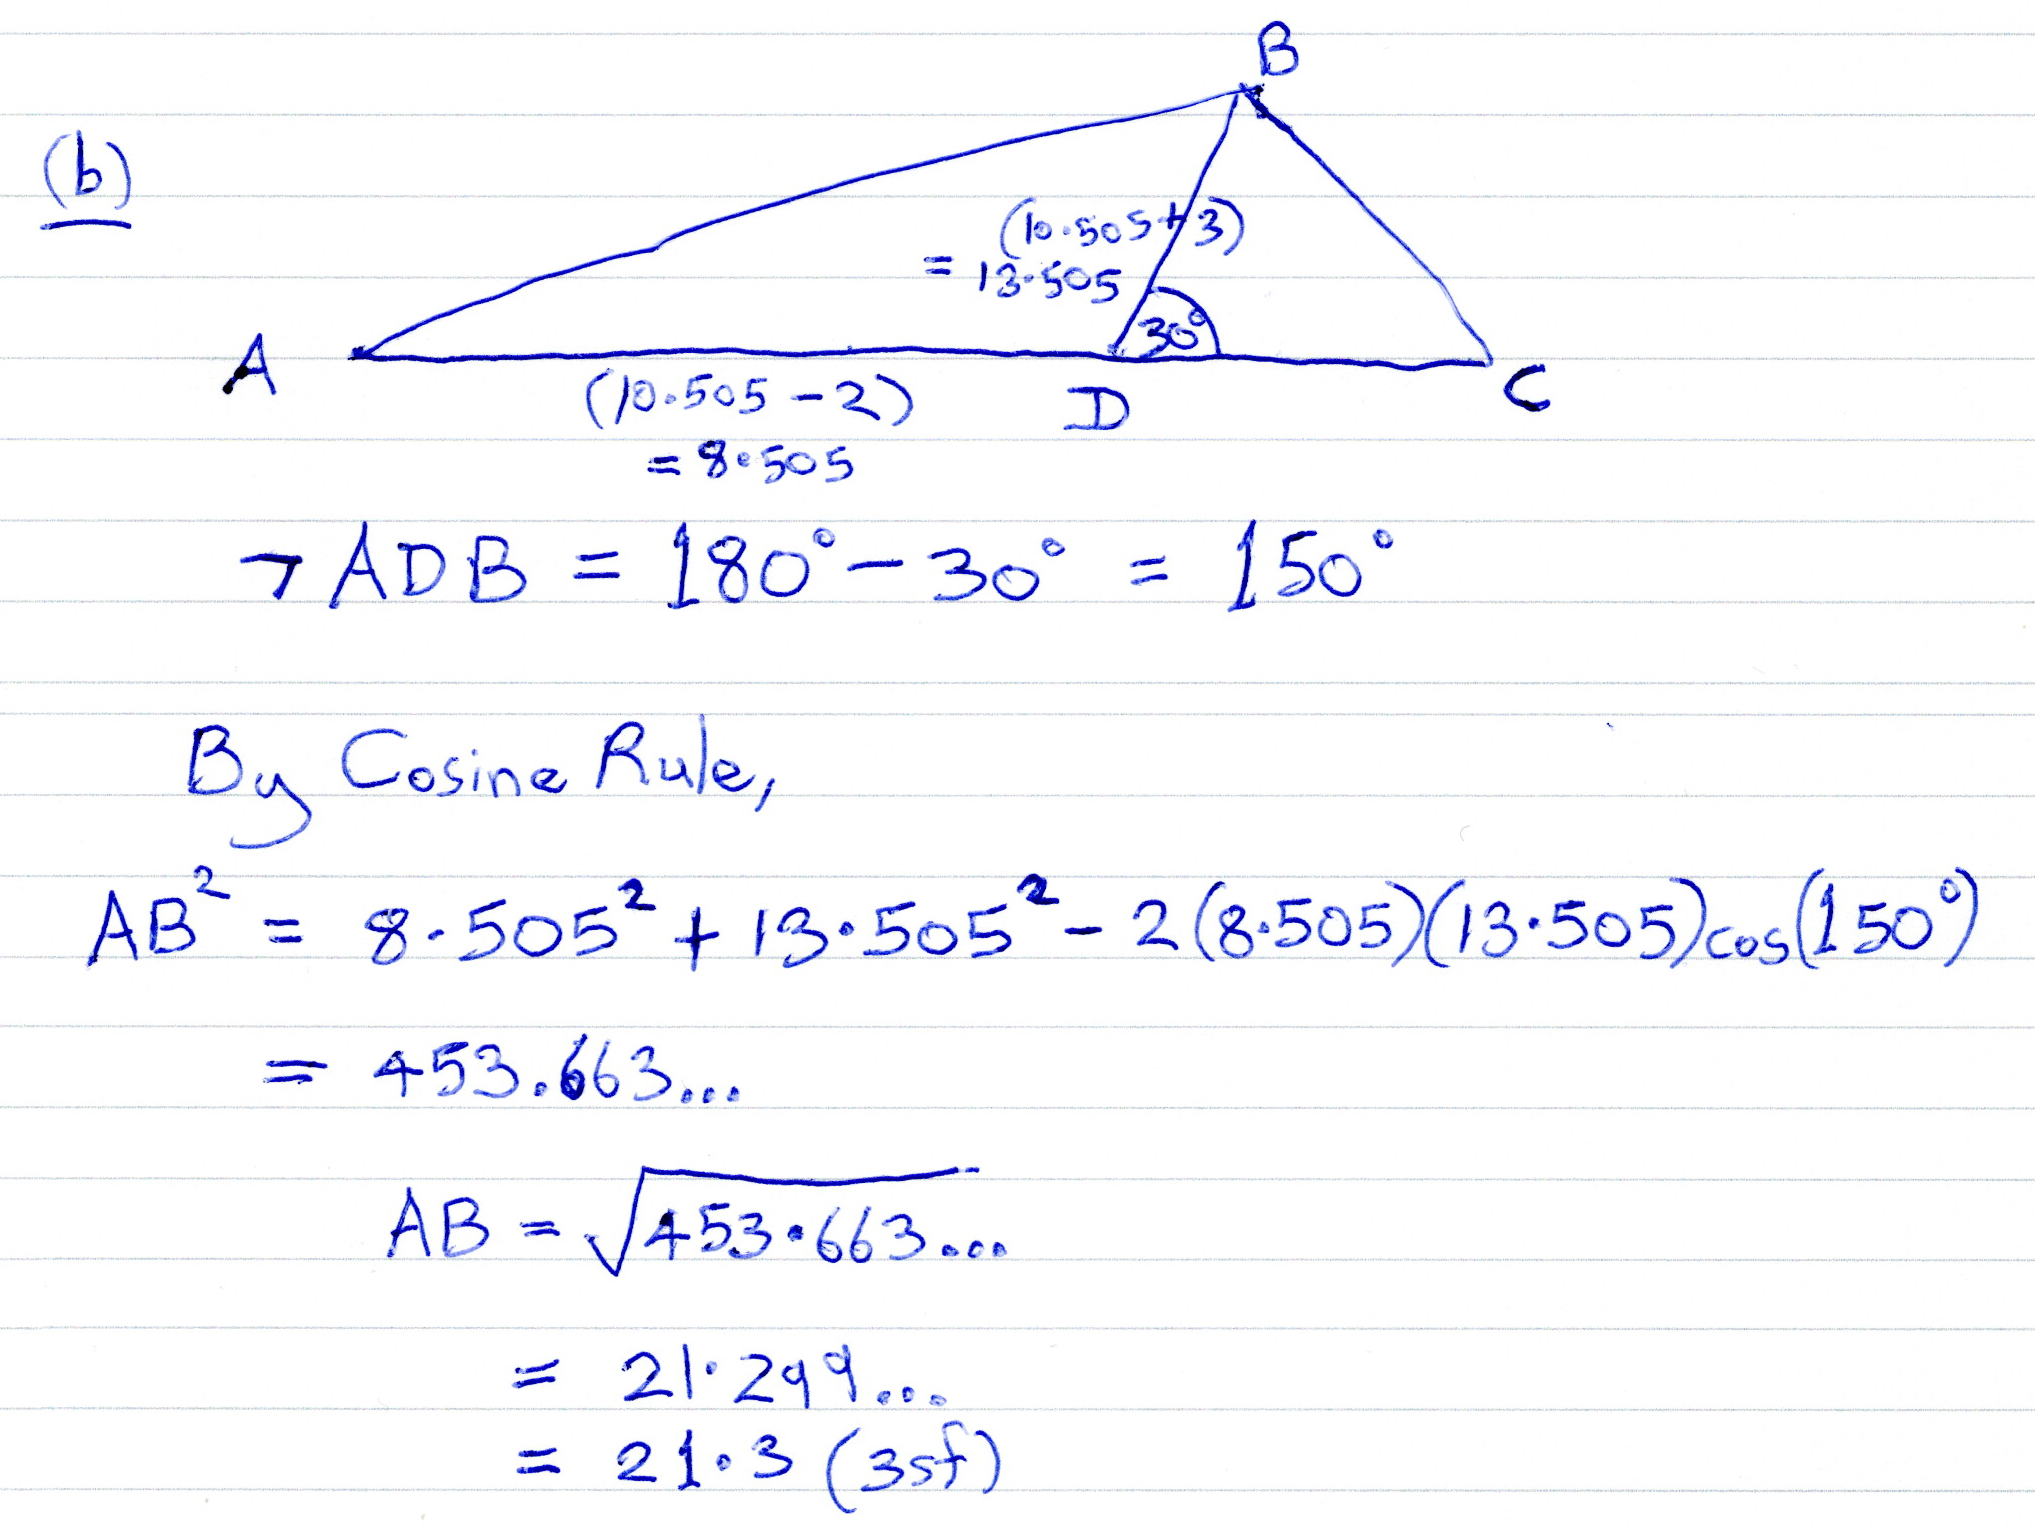 B
(b)
(10.505+3)
= 13.505
30°
A
(10.505 - 2)
D
C
= 8.505
¬ ADB = 180° - 30° = 150°
By Cosine Rule,
AB² = 8.505² + 13.505² - 2(8.505)(13.505)cos(150°)
= 453.663...
AB = √453.663...
= 21.299...
= 21.3 (3sf)